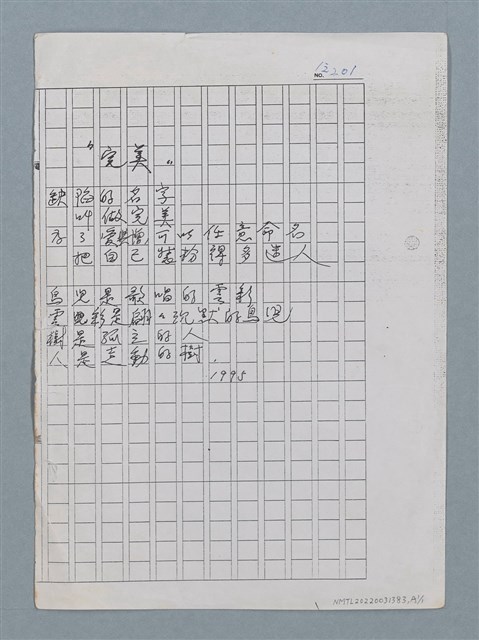 NO. 詩201
"完美"
缺陷的名字
叫做完美
為了愛 可以任意命名
把自己裝扮得多迷人
鳥兒是歌唱的雲彩
雲彩是翩翩沉默的鳥兒
樹是孤立的人
人是走動的樹.
1995
NMTL20220031383